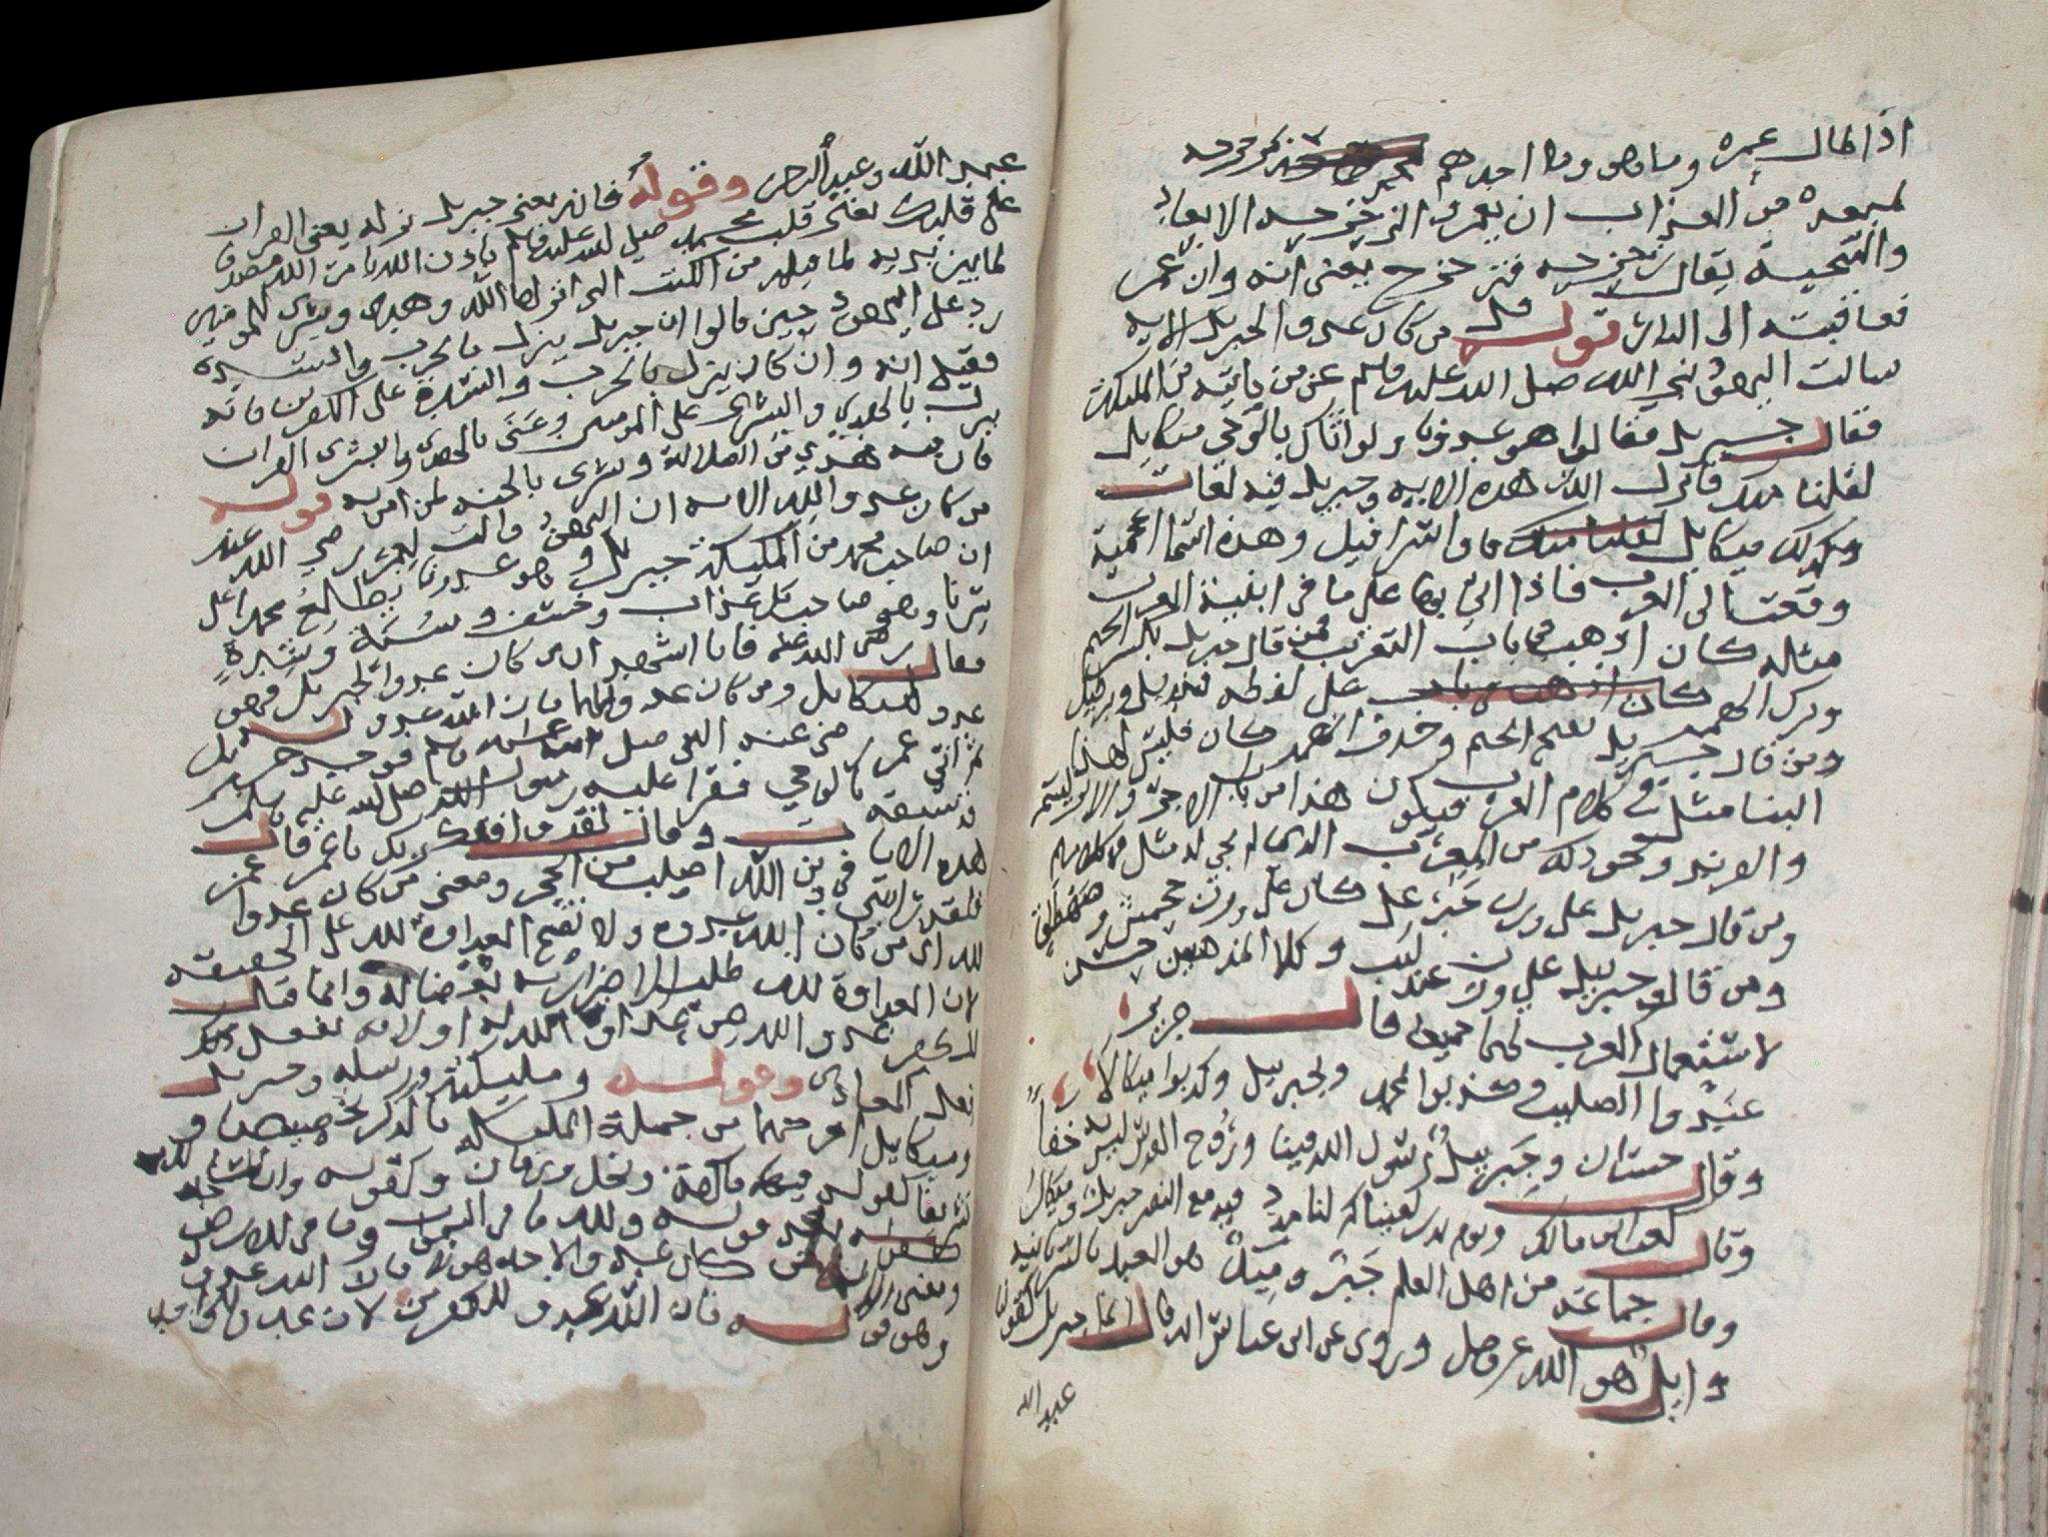 اذا طال عمره وما هو وما احدهم بمزحزحه
لمبعده من العذاب ان يعمر والزحزحه الابعاد
والتنحية يقال زحزحه فتزحزح يعنى انه وان عمر
فعاقبته الى النار قوله قل من كان عدوا لجبريل الايه
سالت اليهود نبي الله صلى الله عليه وسلم عن من ياتيه من المليكة
فقال جبريل فقالوا هو عدونا ولو اتاك بالوحى ميكايل
لقبلنا منك فانزل الله هذه الايه وجبريل فيه لغات
وكذلك ميكايل واسرافيل وهذه اسما اعجمية
وقعت الى العرب فاذا اتى بها على ما فى ابنية العرب
مثله كان اذهب فى باب التعريب فمن قال جبريل بكسر الجيم
وترك الهمز كان على لفظه قنديل وبرطيل
ومن قال جبريل بفتح الجيم وحذف الهمز كان فليس لهذا
البنا مثل فى كلام العرب فيكون هذا من باب الاجر والابريسم
والفرند ونحو ذلك من المعرب الذى لم يجى له مثل فى كلامهم
ومن قال جبريل على وزن جبرعل كان على وزن جحمرش وصهصلق
ومن قال جبرييل على وزن عندليب وكلا المذهبين حسن
لاستعمال العرب لهما جميعا قال جرير
عبدوا الصليب وكذبوا بمحمد وبجبرييل وكذبوا ميكالا
وقال حسان وجبرييل رسول الله فينا وروح القدس ليس له خفا
وقال كعب ابن مالك ويوم بدر لقيناكم لنا مدد فيه مع النصر جبريل وميكال
وقال جماعة من اهل العلم جبر وميك هو العبد بالسريانيه
وايل هو الله عز وجل وروى عن ابن عباس انه قال انما جبريل كقولنا
عبد الله
عبد الله وعبد الرحمن وقوله فانه يعنى جبريل نزله يعنى القران
على قلبك يعنى قلب محمد صلى الله عليه وسلم باذن الله بامر الله مصدقا
لما بين يديه لما قبله من الكتب التى انزلها الله وهدى وبشرى للمومنين
رد على اليهود حين قالوا ان جبريل ينزل بالحرب والشدة
فقيل انه وان كان ينزل بالحرب والشدة على الكفرين فانه
ينزل بالهدى والبشرى على المومنين وعنى بالهدى والبشرى القران
فان فيه هدى من الضلالة وبشرى بالجنه لمن امن به قوله
من كان عدوا لله الايه ان اليهود قالت لعمر رضي الله عنه
ان صاحب محمد من المليكة جبريل وهو عدونا يطالع محمدا على
سرنا وهو صاحب كل عذاب وخسف وسنة وشدة
فقال رضى الله عنه فانا اشهد ان من كان عدوا لجبريل فهو
عدو لميكايل ومن كان عدوا لهما فان الله عدو له
ثم اتى عمر رضى عنه النبى صلى الله عليه وسلم فوجد جبريل
قد سبقه بالوحي فقرا عليه رسول الله صلى الله عليه وسلم
هذه الايات وقال لقد وافقك ربك يا عمر قال عمر
فلقد رايتنى فى دين الله اصلب من الحجر ومعنى من كان عدوا
لله اى من كان لله عدوه ولا تصح العداوة لله على الحقيقه
لان العداوة لله طلب الاضرار به بغضا له وانما قال
للكفر عدو الله من عداوة الله له او لانه يفعل
فعل المعادى وقوله ومليكته ورسله وجبريل
وميكايل اخرجهما من جملة المليكة بالذكر تخصيصا و
تشريفا كقوله فيهما فاكهة ونخل ورمان وكقوله وان المساجد لله
بعد قوله ولله ما فى السموات وما فى الارض
ومعنى الايه من كان عدوا لاحد هولا فان الله عدو له
وهو قوله فان الله عدو للكفرين لان عدو